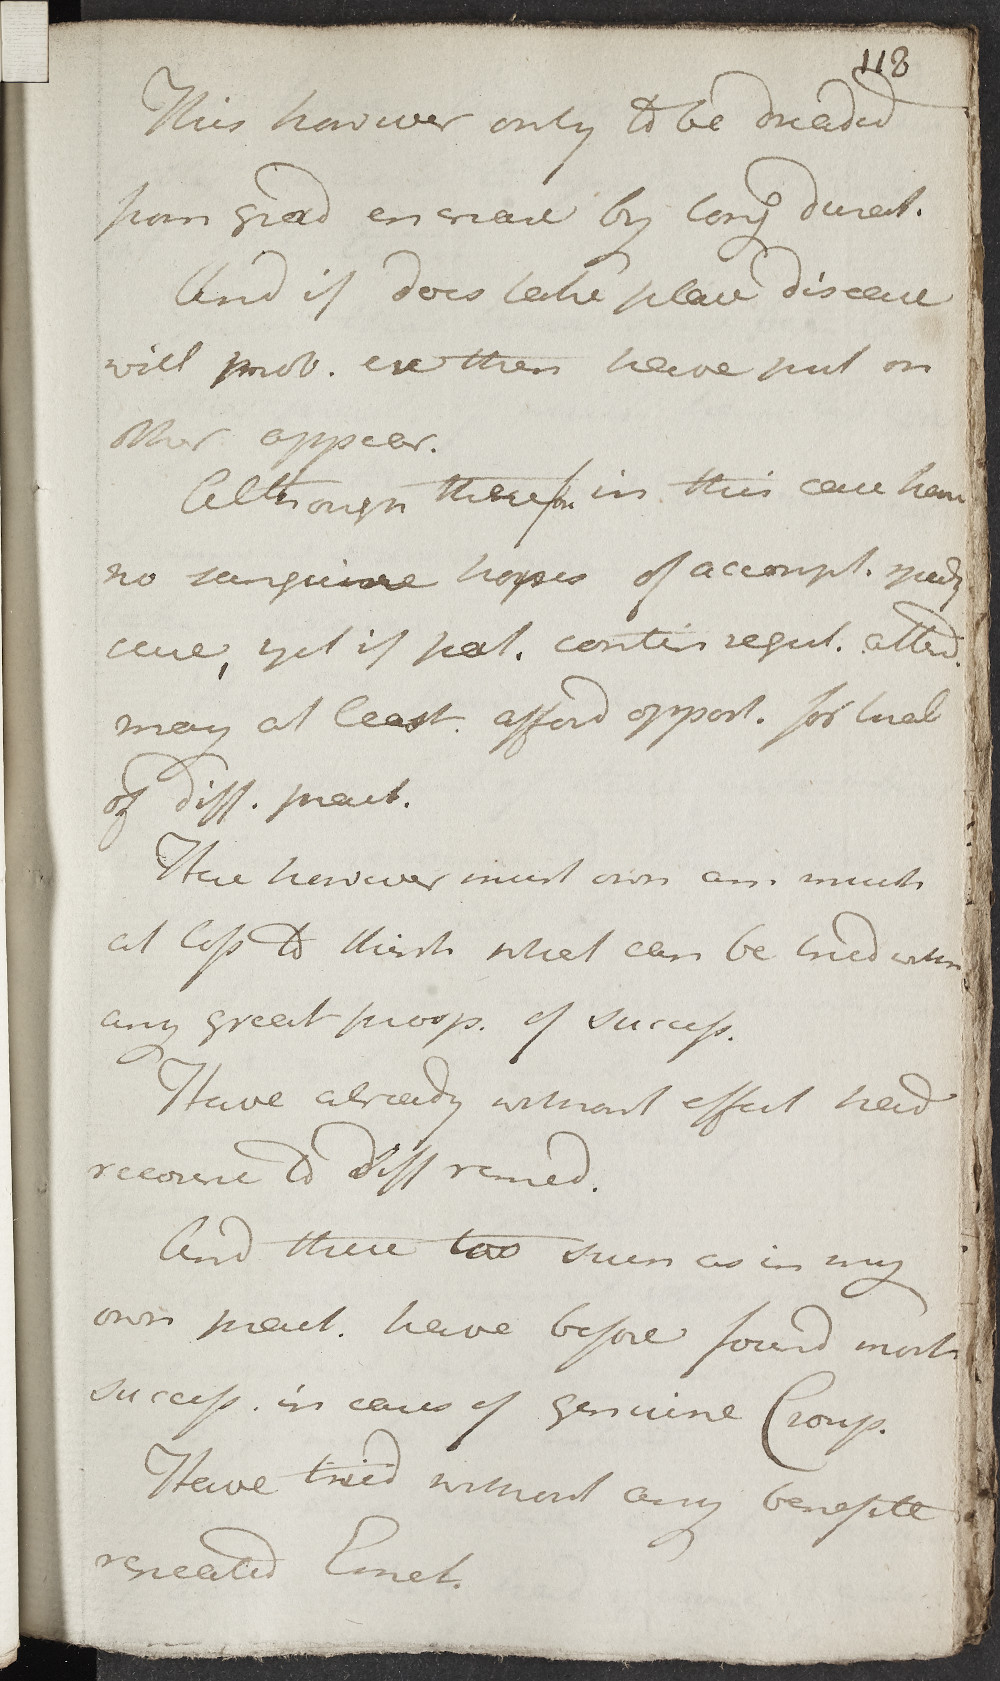 118
This however only to be dreaded
from grad encrease by long durat.
And if does take place disease
will prob. ere then have put on
other appear.
Although therefore in this case have
no sanguine hopes of accompl. speedy
cure, yet if pat. contin regul. attend.
may at least afford opport. for trial
of diff. pract.
Here however must own am much
at loss to think what can be tried with
any great prosp. of success.
Have already without effect had
recourse to diff remed.
And these too such as in my
own pract. have before found most
success. in cases of genuine Croup.
Have tried without any benefite
repeated Emet.